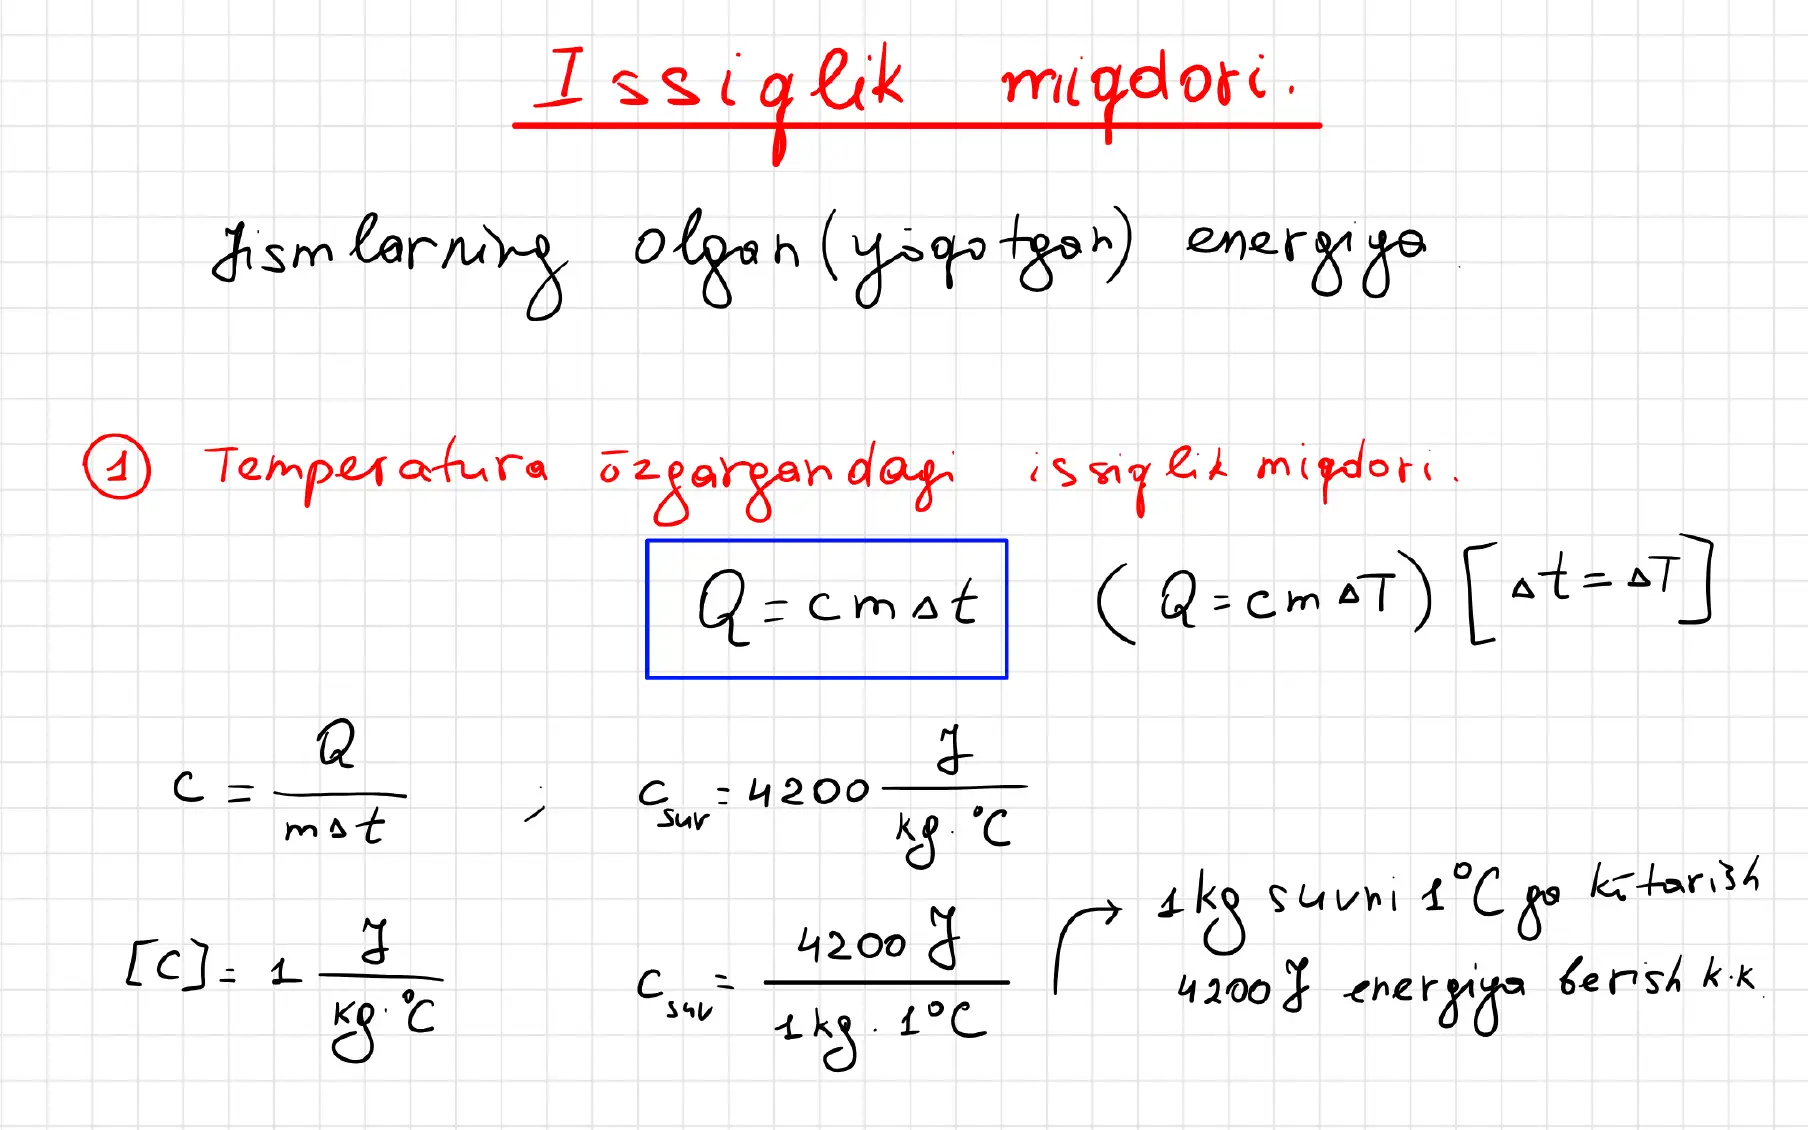 Issiqlik miqdori.
Jismlarning olgan (yōqotgan) energiya
① Temperatura ōzgargandagi issiqlik miqdori.
Q = cm∆t (Q = cm∆T) [∆t = ∆T]
c = Q / m∆t ; c_suv = 4200 J / kg·°C
[C] = 1 J / kg·°C c_suv = 4200 J / 1kg · 1°C → 1kg suvni 1°C ga kōtarish
4200 J energiya berish k.k